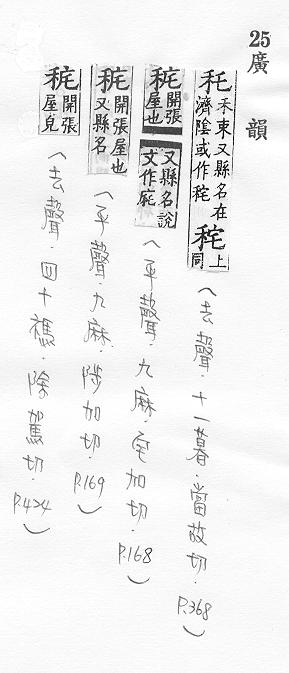 25廣韻
秅禾束又縣名在濟陰或作秺 秺上同（去聲．十一暮．當故切．P.368）
秺開張屋也 又縣名說文作㡯（平聲．九麻．宅加切．P.168）
秺開張屋也又縣名（平聲．九麻．陟加切．P.169）
秺開張屋皃（去聲．四十禡．除駕切．P.424）